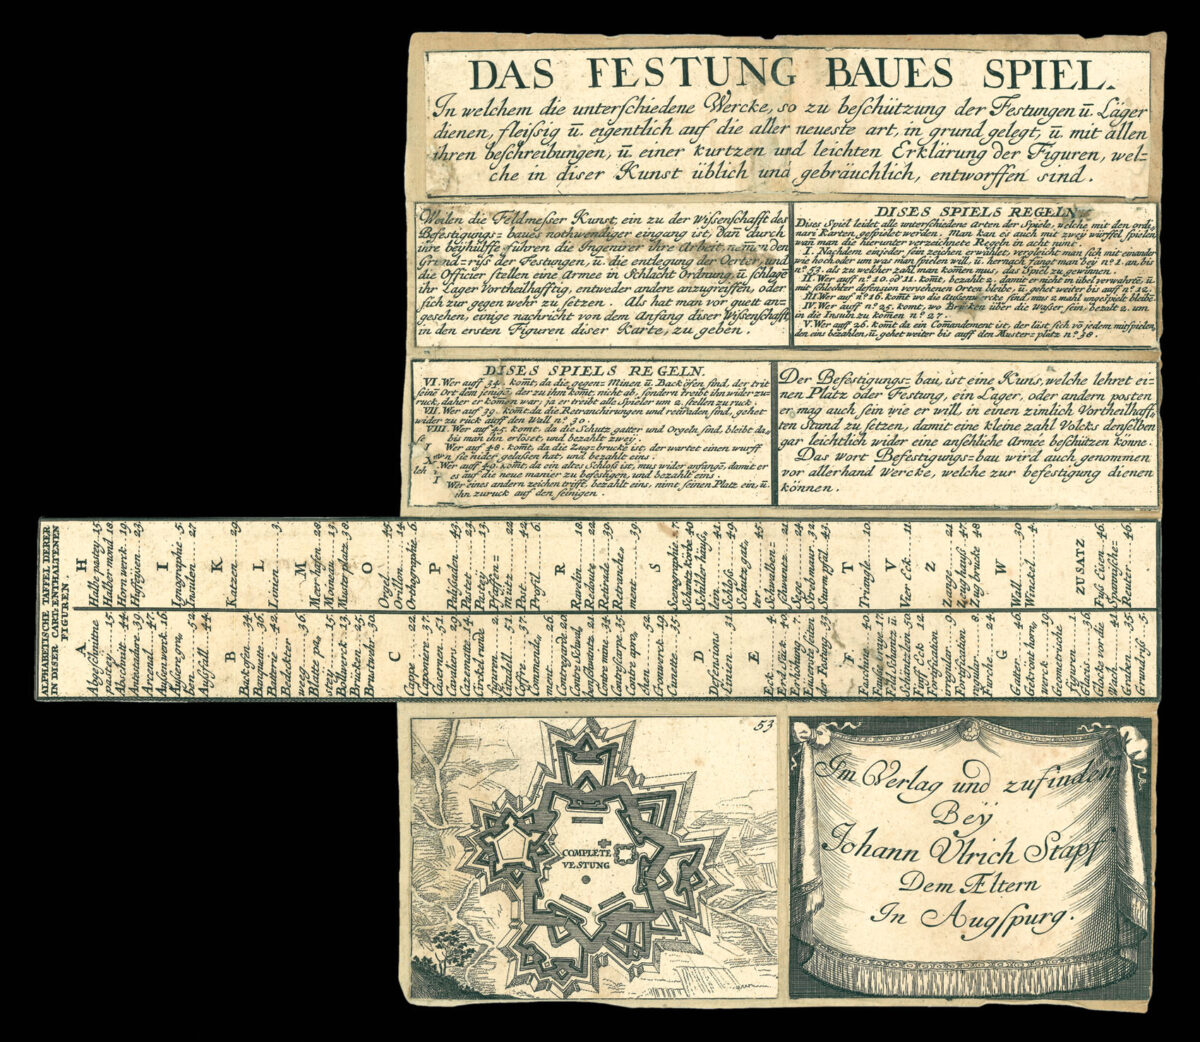 DAS FESTUNG BAUES SPIEL.
In welchem die unterschiedene Wercke, so zu beschützung der Festungen ū. Läger
dienen, fleissig ū. eigentlich auf die aller neueste art, in grund gelegt, ū. mit allen
ihren beschreibungen, ū. einer kurtzen und leichten Erklärung der Figuren, wel=
che in diser Kunst üblich und gebräuchlich, entworffen sind.
Weilen die Feldmesser Kunst, ein zu der Wissenschafft des
Befestigungs=baues nothwendiger eingang ist, Dañ durch
ihre beyhülffe führen die Ingenirer ihre Arbeit, nemen den
Grund=riss der Festungen, ū. die entlegung der Oerter, und
die Officier stellen eine Armee in Schlacht Ordnung, ū. schlagē
ihr Lager Vortheilhafftig, entweder andere anzugreiffen, oder
sich zur gegen wehr zu setzen. Als hat man vor guett an=
gesehen, einige nachricht von dem Anfang diser Wissenschafft
in den ersten Figuren diser Karte, zu geben.
DISES SPIELS REGELN.
Dises Spiel leidet alle unterschiedene Arten der Spiele, welche mit den ordi=
nari Karten, gespielet werden. Man kan es auch mit zwey würffel spielen,
wan man die hierunter verzeichnete Regeln in acht nimt.
I. Nachdem ein jeder sein zeichen erwählet, vergleicht man sich mit einander
wie hoch oder um was man spielen will, ū. hernach fangt man bey nº. 1. an, bis
nº. 53. als zu welcher zahl man kom̄en mus, das Spiel zu gewinnen.
II. Wer auf nº. 10. od 11. komt, bezahlt 2. damit er nicht in übel verwahrte, ū.
mit schlechter defension versehenen Orten bleibe, ū. gehet weiter bis auf nº. 12.
III Wer auf nº. 16. komt wo die Aussenwercke sind, mus 2 mahl ungespielt bleibē
IV. Wer auff nº. 25. komt, wo Brücken über die Wasser sein, bezalt 2. um
in die Insuln zu kom̄en nº. 27.
V. Wer auff 26. komt da ein Com̄andement ist, der läst sich vō jedem mitspielen,
den eins bezahlen, ū. gehet weiter bis auff den Muster=platz nº. 38.
DISES SPIELS REGELN.
VI. Wer auff 34. komt, da die gegen=Minen ū. Back öfen sind, der trit
seine Ort dem jenigē, der zu ihm komt, nicht ab, sondern treibt ihn wider zu=
ruck, daher er kom̄en war, ja er treibt alle Spieler um 2. stellen zu ruck.
VII. Wer auf 39. komt. da die Retranchirungen und reduaden sind, gehet
wider zu rück auff den Wall nº. 30.
VIII. Wer auf 45. komt, da die Schutz gatter und Orgeln sind, bleibt da,
bis man ihn erlöset, und bezahlt zwey.
Wer auf 48. komt, da die Zug=brücke ist, der wartet einen wurff
sie nider gelassen hat, und bezahlt eins.
Wer auf 49. komt, da ein altes Schloss ist, mus wider anfangē, damit er
es auf die neue manier zu befestigen, und bezahlt eins.
Wer eines andern zeichen trifft, bezahlt eins, nim̄t seinen Platz ein, ū.
ihn zuruck auf den seinigen.
Der Befestigungs=bau, ist eine Kunst, welche lehret ei=
nen Platz oder Festung, ein Lager, oder andern posten
er mag auch sein wie er will, in einen zimlich Vortheilhaff=
ten Stand zu setzen, damit eine kleine zahl Volcks denselben
gar leichtlich wider eine ansehliche Armée beschützen könne.
Das wort Befestigungs=bau wird auch genommen
vor allerhand Wercke, welche zur befestigung dienen
können.
ALPHABETISCHE TAFFEL DERER
IN DISER CARTE ENTHALTENEN
FIGUREN.
A
Abgeschnittne
pastey....15
Abschnitt...44
Arcenal...47
Aussen werck.16
Aussere gra=
ben.....52
Ausfall...44
B
Backofen...34
Banquette...36
Batterie...42
Bedeckter
weeg....36
Blatte pa=
stey....15
Bollwerck...13
Brücken...25
Brustwehr...30
C
Cappe.....22
Caponere...37
Casernen...51
Cavaliers...29
Cazematte...14
Cirkel runde
Figuren...2
Citadell...51
Coffre....37
Commende=
ment....26
Contregarde 20
Contre mine 34
Contrescarpe 35
Cronwerck...19
Cunette...35
D
Defensions
Linien...3
E
Eck....4
F
Faschinen...40
Fünf Eck..12
Fortification
irregular...9
Fortification
regular...8
Furche...24
G
Gatter...46
Gekrönt horn=
werck...19
Geometrische
figuren...1
Glacis...36
Graben...35
Grundriss...5
H
Halbe pastey...15
Halber mond.18
Hornwerck...19
Huffeisen...23
I
Ignographie...5
Insulen....27
K
Katzen....29
L
Linien....3
M
Meer hafen...28
Moineau....13
Muster platz.38
O
Orgel....45
Orillon...14
Orthographie.6
P
Palisaden...43
Pastei....13
Pfaffen=
Mütz...22
Profil...6
R
Ravelin....18
Redoute....22
Retranche=
ment....39
S
Scenographie.7
Schantz körbe.40
Schilder häus=
lein....41
Schloss...49
Schutz gat=
ter....45
Schwalben=
Schwantz..21
Seg....24
Streichwinckel
Sturm pfäl.43
T
Triangle....10
V
Vier Eck...11
Z
Zange....21
Zeughauss...47
Zug brücke..48
W
Wall....30
Winckel...4
ZUSATZ
Fuss Eisen..46
Spannische=
Reuter...46
53
COMPLETE
VESTUNG
Im Verlag und zufinden
Beÿ
Johann Ulrich Stapf
Dem Æltern
In Augspurg.